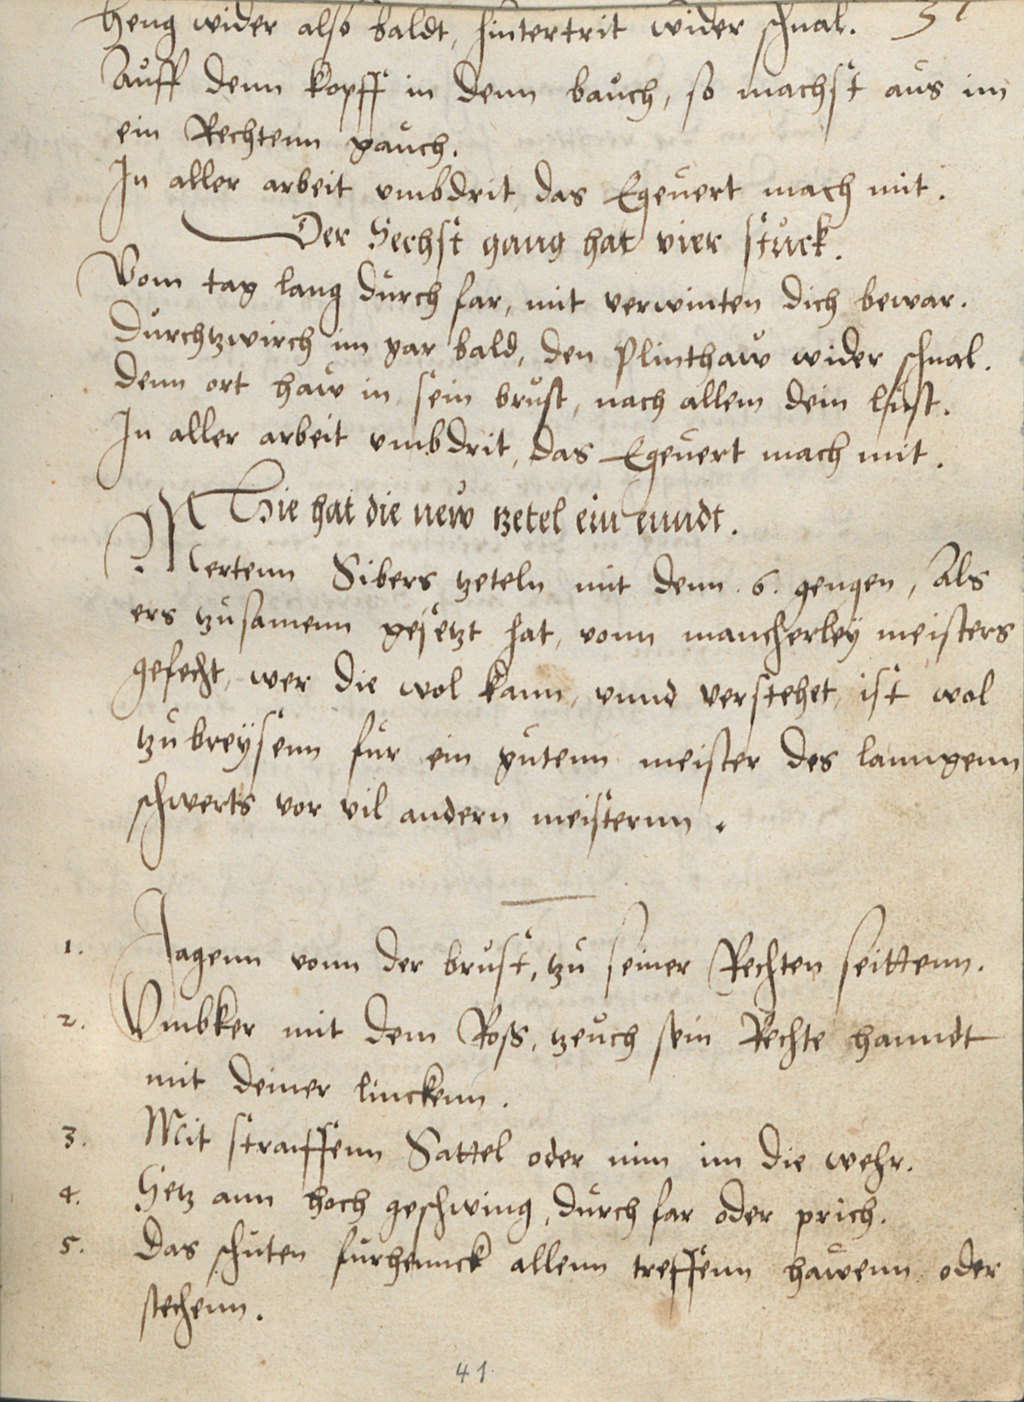 heng wider also baldt, hintertrit wider schnal.
Auff denn kopff in denn bauch, so machst aus im
ein Rechtenn gauch.
In aller arbeit vmbdrit, das Egeuert mach mit.
Der Sechst gang hat vier stuck.
Vom tag lang durch far, mit verwinten dich bewar.
Durchtzwirch im gar bald, den Plinthaw wider schnal.
denn ort haw in sein brust, nach allem dein lust.
In aller arbeit vmbdrit, das Egeuert mach mit.
Hie hat die new tzetel ein enndt.
Mertenn Sibers tzeteln mit denn .6. gengen, Als
ers tzusamenn gesetzt hat, vonn mancherley meisters
gefecht, wer die wol kann, vnnd verstehet, ist wol
tzubreysenn fur ein gutenn meister des lanngenn
schwerts vor vil andern meisternn.
1. Jagenn vonn der brust, tzu seiner Rechten seittenn.
2. Vmbker mit dem Ross, tzeuch sein Rechte hanndt
mit deiner linckenn.
3. Mit straiffenn Sattel oder nim im die wehr.
4. Setz ann hoch geschwing, durch far oder prich.
5. Das schuten furhennck allenn treffenn hawenn oder
stechenn.
41